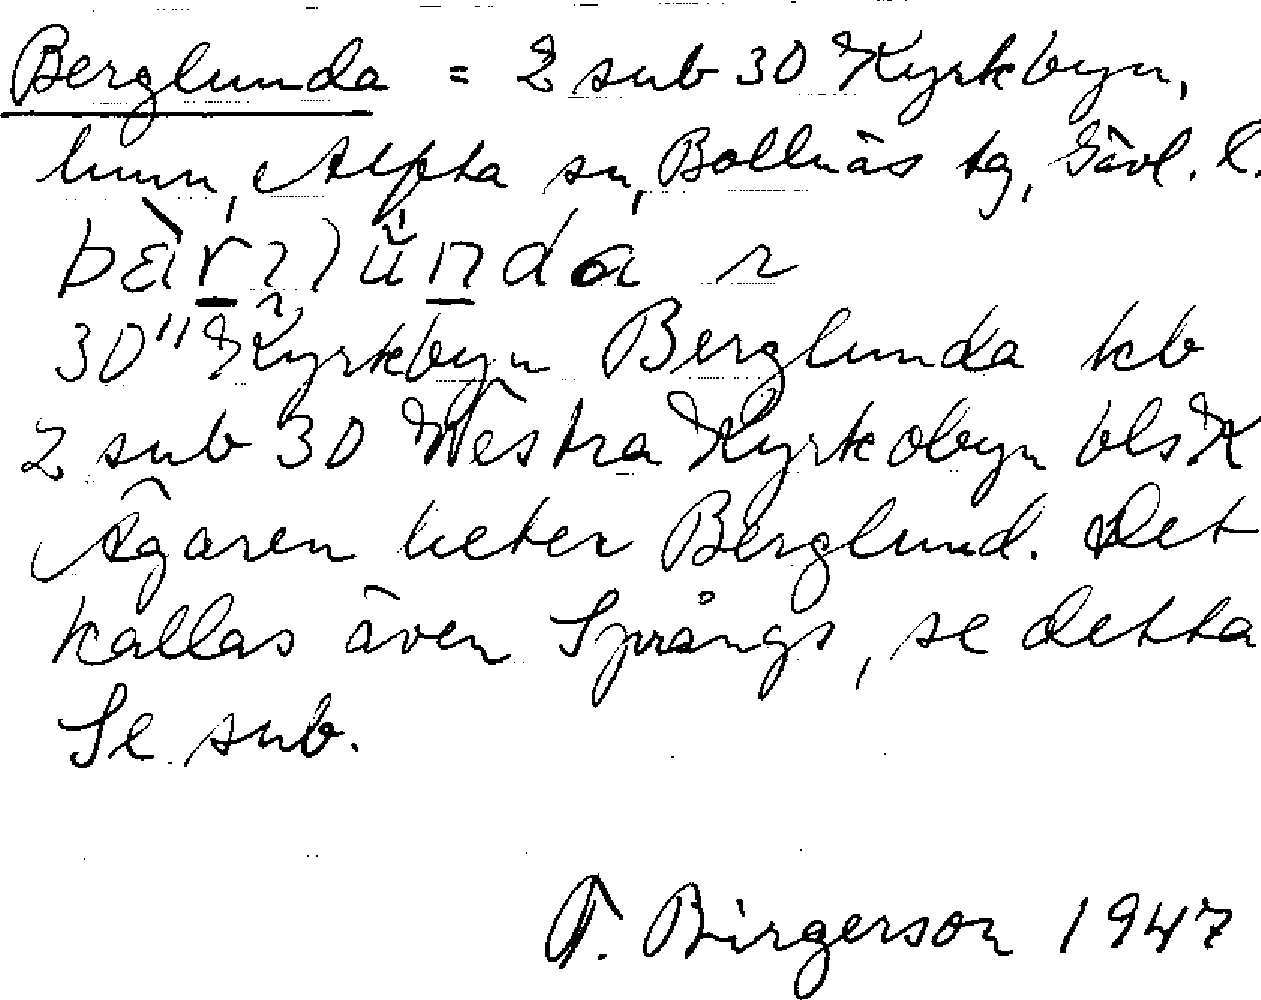 Berglunda = 2 sub 30 Kyrkbyn,
hmn, Alfta sn, Bollnäs tg, Gävl. l.
30" Kyrkbyn Berglunda kb
2 sub 30 Westra Kyrkobyn bls K
Ägaren heter Berglund. Det
kallas även Språngs, se detta
Se sub.
T. Birgerson 1947